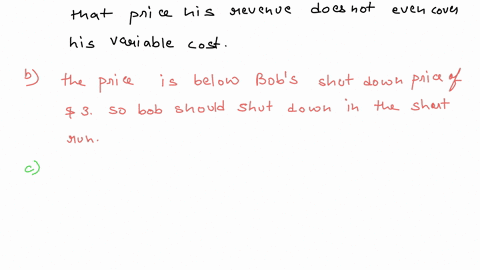 that price his revenue does not even cover
his variable cost.
b) the price is below Bob's shut down price of
$3. so bob should shut down in the short
run.
c)